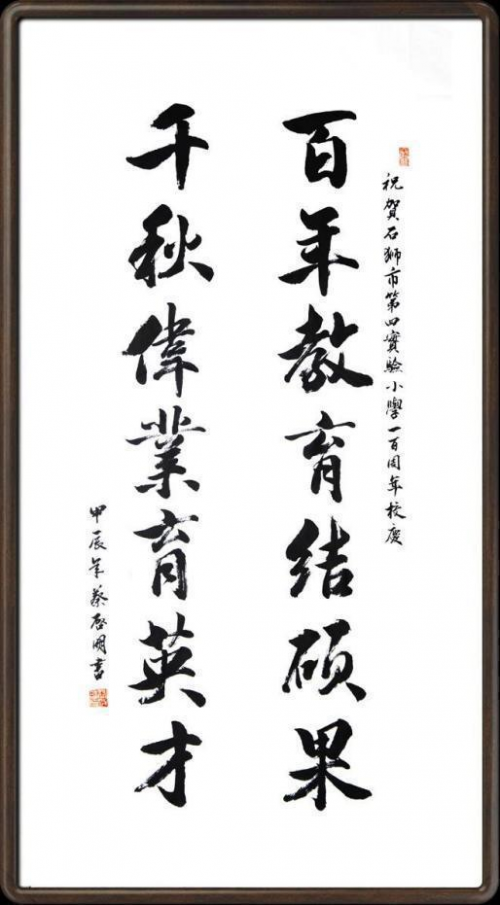 祝賀石獅市第四實驗小學一百周年校慶
百年教育结碩果
千秋偉業育英才
甲辰年蔡啓明書